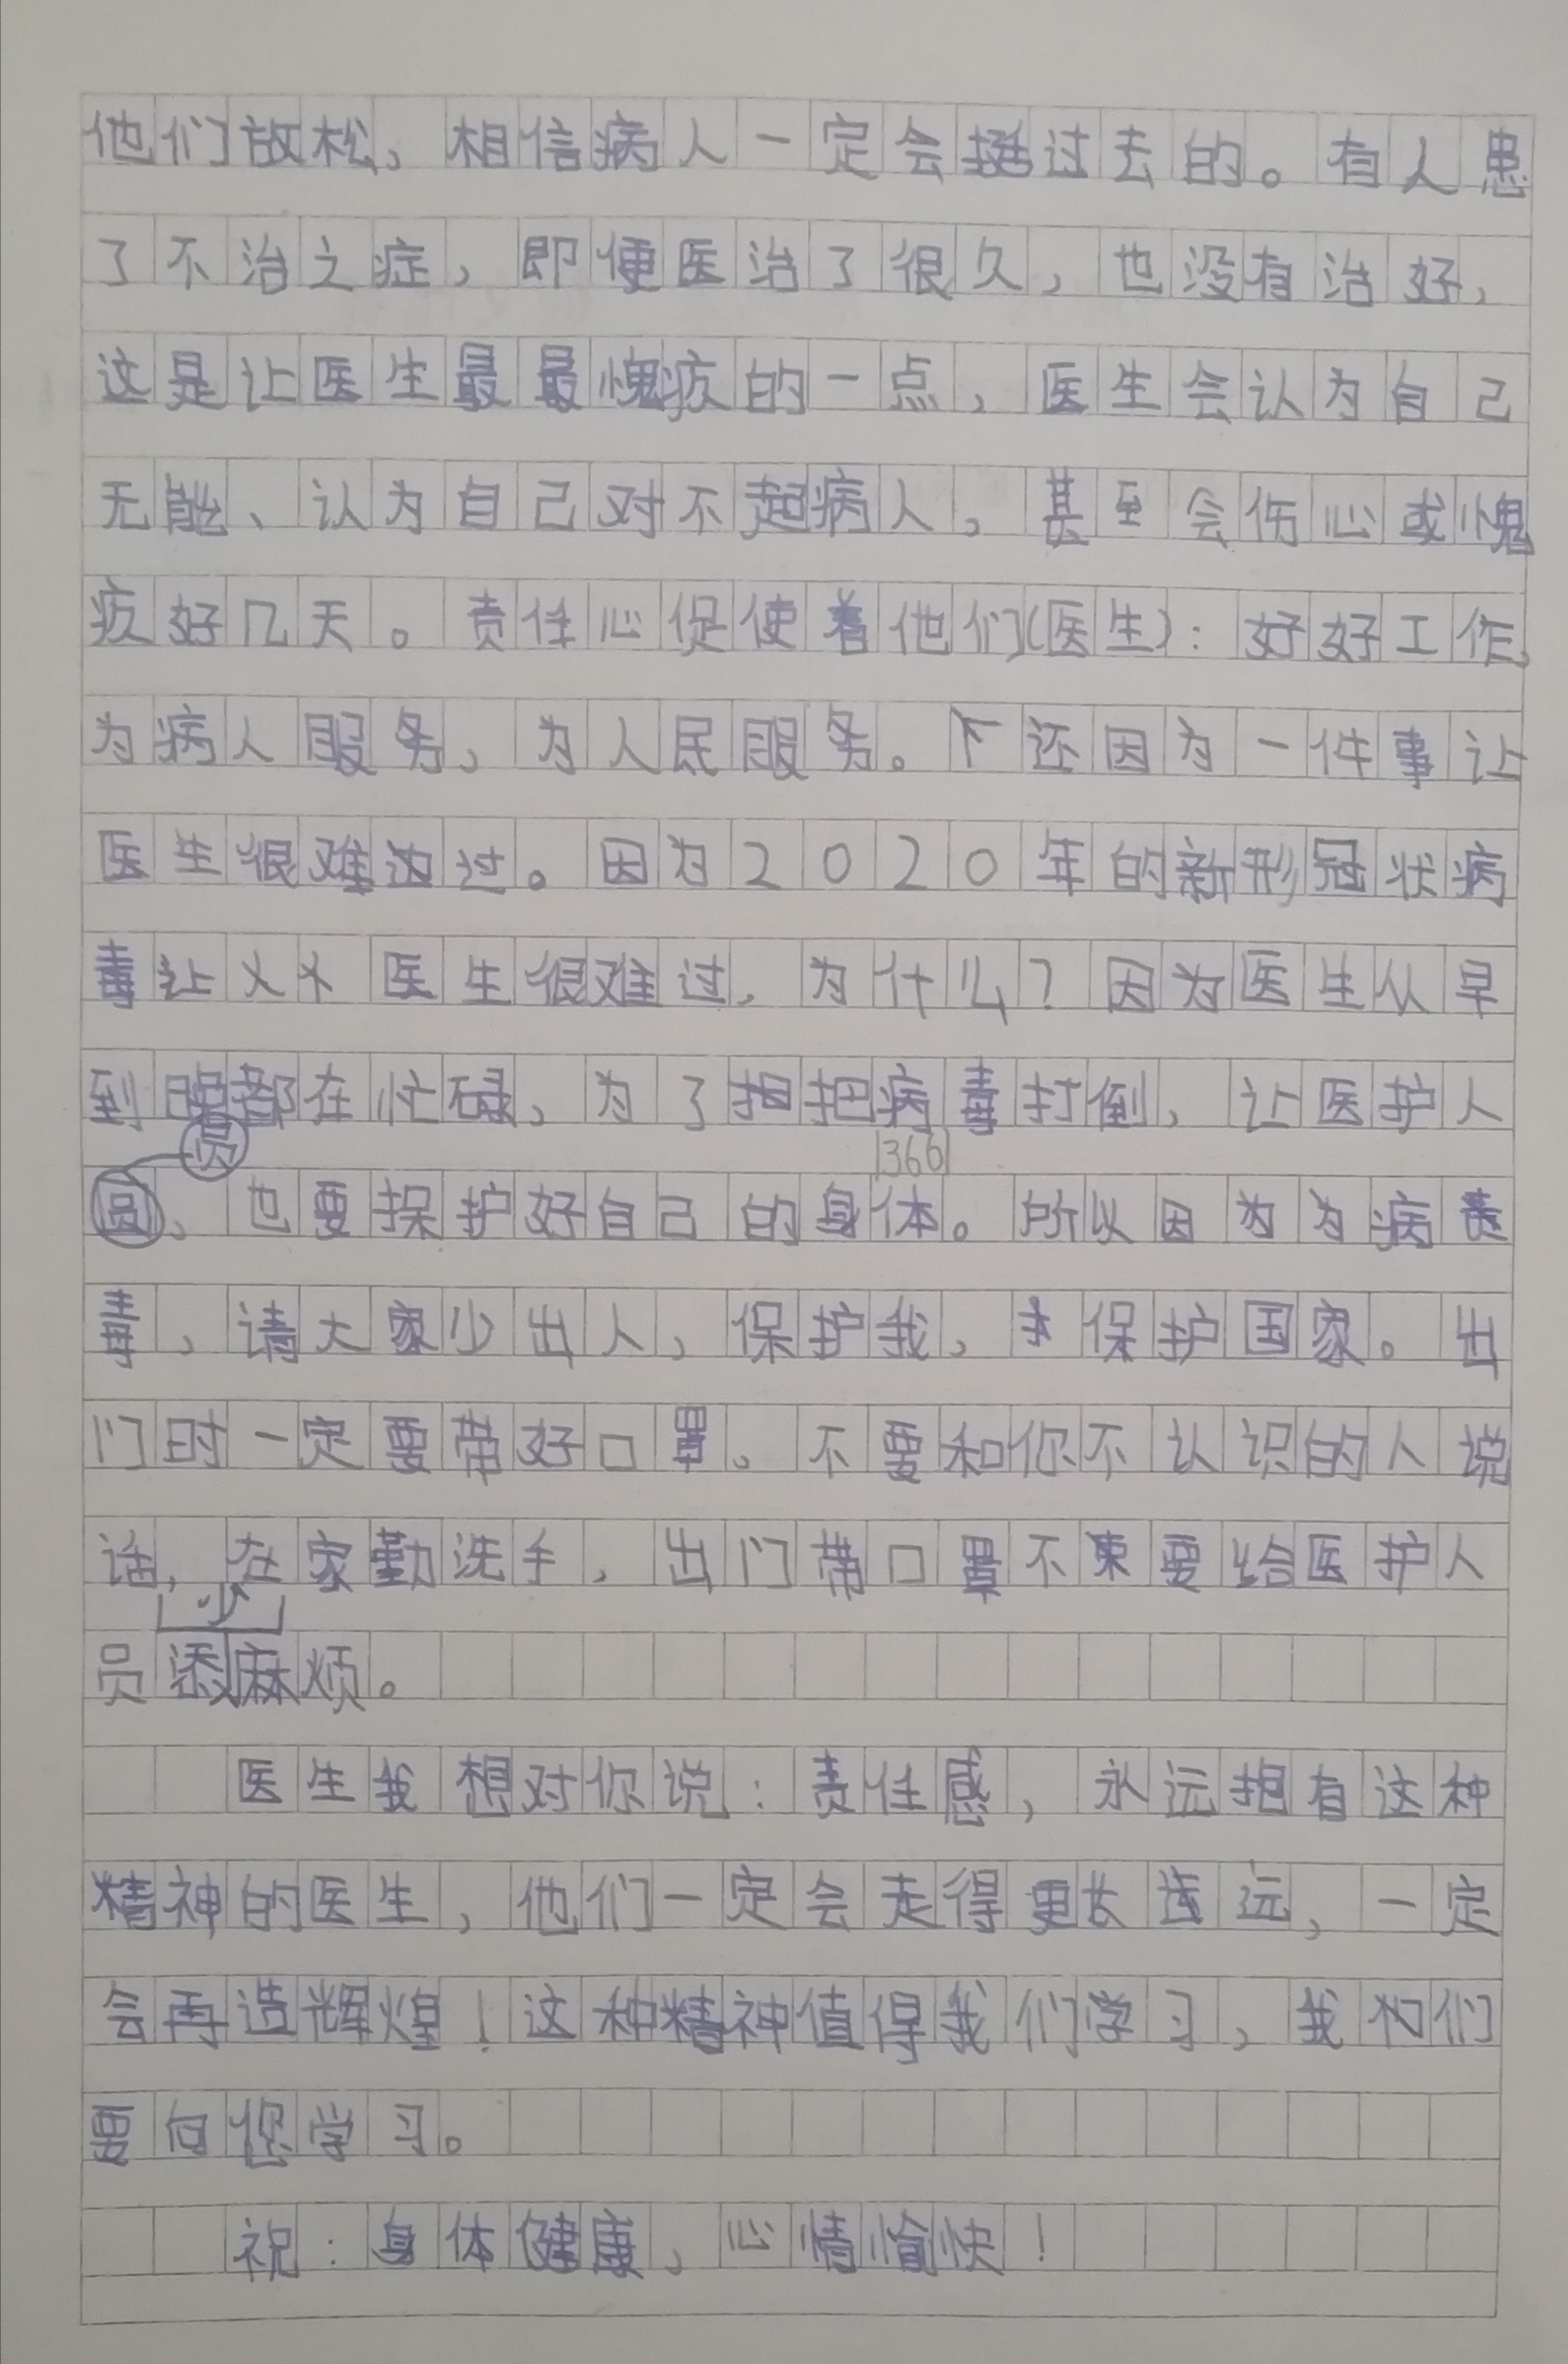 他们放松，相信病人一定会挺过去的。有人患
了不治之症，即便医治了很久，也没有治好，
这是让医生最最愧疚的一点，医生会认为自己
无能、认为自己对不起病人，甚至会伤心或愧
疚好几天。责任心促使着他们(医生)：好好工作，
为病人服务，为人民服务。下还因为一件事让
医生很难过。因为2020年的新形冠状病
毒让医生很难过，为什么？因为医生从早
到晚都在忙碌，为了把病毒打倒，让医护人
员
圆，也要保护好自己的身体。所以因为为病
366
毒，请大家少出人，保护我，保护国家。出
门时一定要带好口罩。不要和你不认识的人说
话，在家勤洗手，出门带口罩不要给医护人
少
员添麻烦。
医生我想对你说：责任感，永远抱有这种
精神的医生，他们一定会走得更长远，一定
会再造辉煌！这种精神值得我们学习，我们
要向您学习。
祝：身体健康，心情愉快！